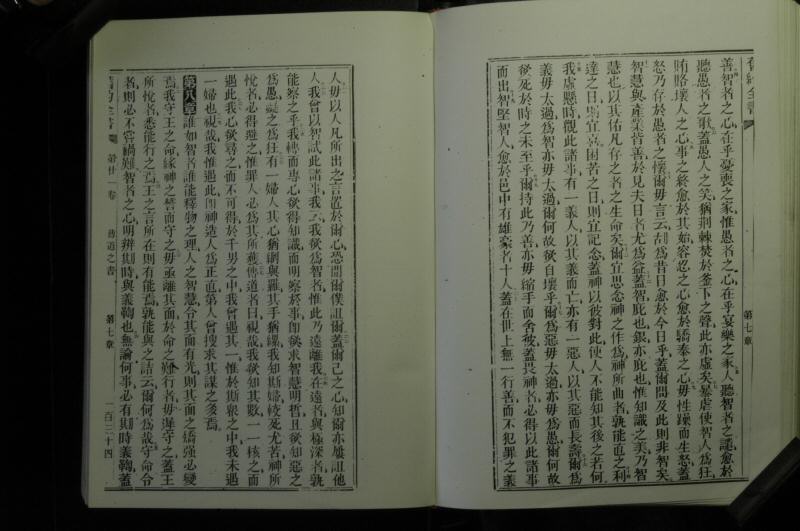 舊約全書
第七章
善智者之心在乎憂喪之家惟愚者之心在乎宴樂之家人聽智者之讉愈於
聽愚者之歌蓋愚人之笑猶荆棘焚於釜下之聲此亦虛矣暴虐使智人為狂
賄賂壞人之心事之終愈於其始容忍之心愈於驕泰之心毋性躁而生怒蓋
怒乃存於愚者之懷爾毋言云胡為昔日愈於今日乎蓋爾問及此則非智矣
智慧與產業皆善於見夫日者尤為益蓋智庇也銀亦庇也惟知識之美乃智
慧也以其佑凡存之者之生命矣爾宜思念神之作為神所曲者孰能直之利
達之日則宜喜困苦之日則宜記念蓋神以彼對此使人不能知其後之若何
我虛懸時觀此諸事有一義人以其義而亡亦有一惡人以其惡而長壽爾為
義毋太過為智亦毋太過爾何故欲自壞乎爾為惡毋太過亦毋為愚爾何故
欲死於時之未至乎爾持此乃善亦毋縮手而舍彼蓋畏神者必得以此諸事
而出智堅智人愈於邑中有雄豪者十人蓋在世上無一行善而不犯罪之義
人毋以人凡所出之言置於爾心恐聞爾僕詛爾蓋爾己之心知爾亦屢詛他
人我曾以智試此諸事我云我欲為智者惟此乃遠離我在遠者與極深者孰
能察之乎我轉而專心欲得知識而明察於事卽欲求智慧明哲且欲知惡之
為愚疑之為狂有一婦人其心猶網與羅其手猶縲我知斯婦較死尤苦神所
悅者必得避之惟罪人必為其所獲傳道者曰視哉我欲知其數一一核之而
遇此我心欲尋之而不可得於千男之中我曾遇其一惟於斯眾之中我未遇
一婦也視哉我惟遇此卽神造人為正直第人曾搜求其謀之多焉
第八章 誰如智者誰能釋物之理人之智慧令其面有光則其面之驕強必變
焉我守王之命緣神之誓而守之毋亟離其面於命之難行者毋遲守之蓋王
所悅者悉能行之焉王之言所在則有能焉孰能與之詰云爾何為哉守命令
者則必不嘗禍難智者之心明辨其時與義鞫也無論何事必有其時義鞫蓋
舊約全書 第廿一卷 傳道之書 第七章 一百三十四